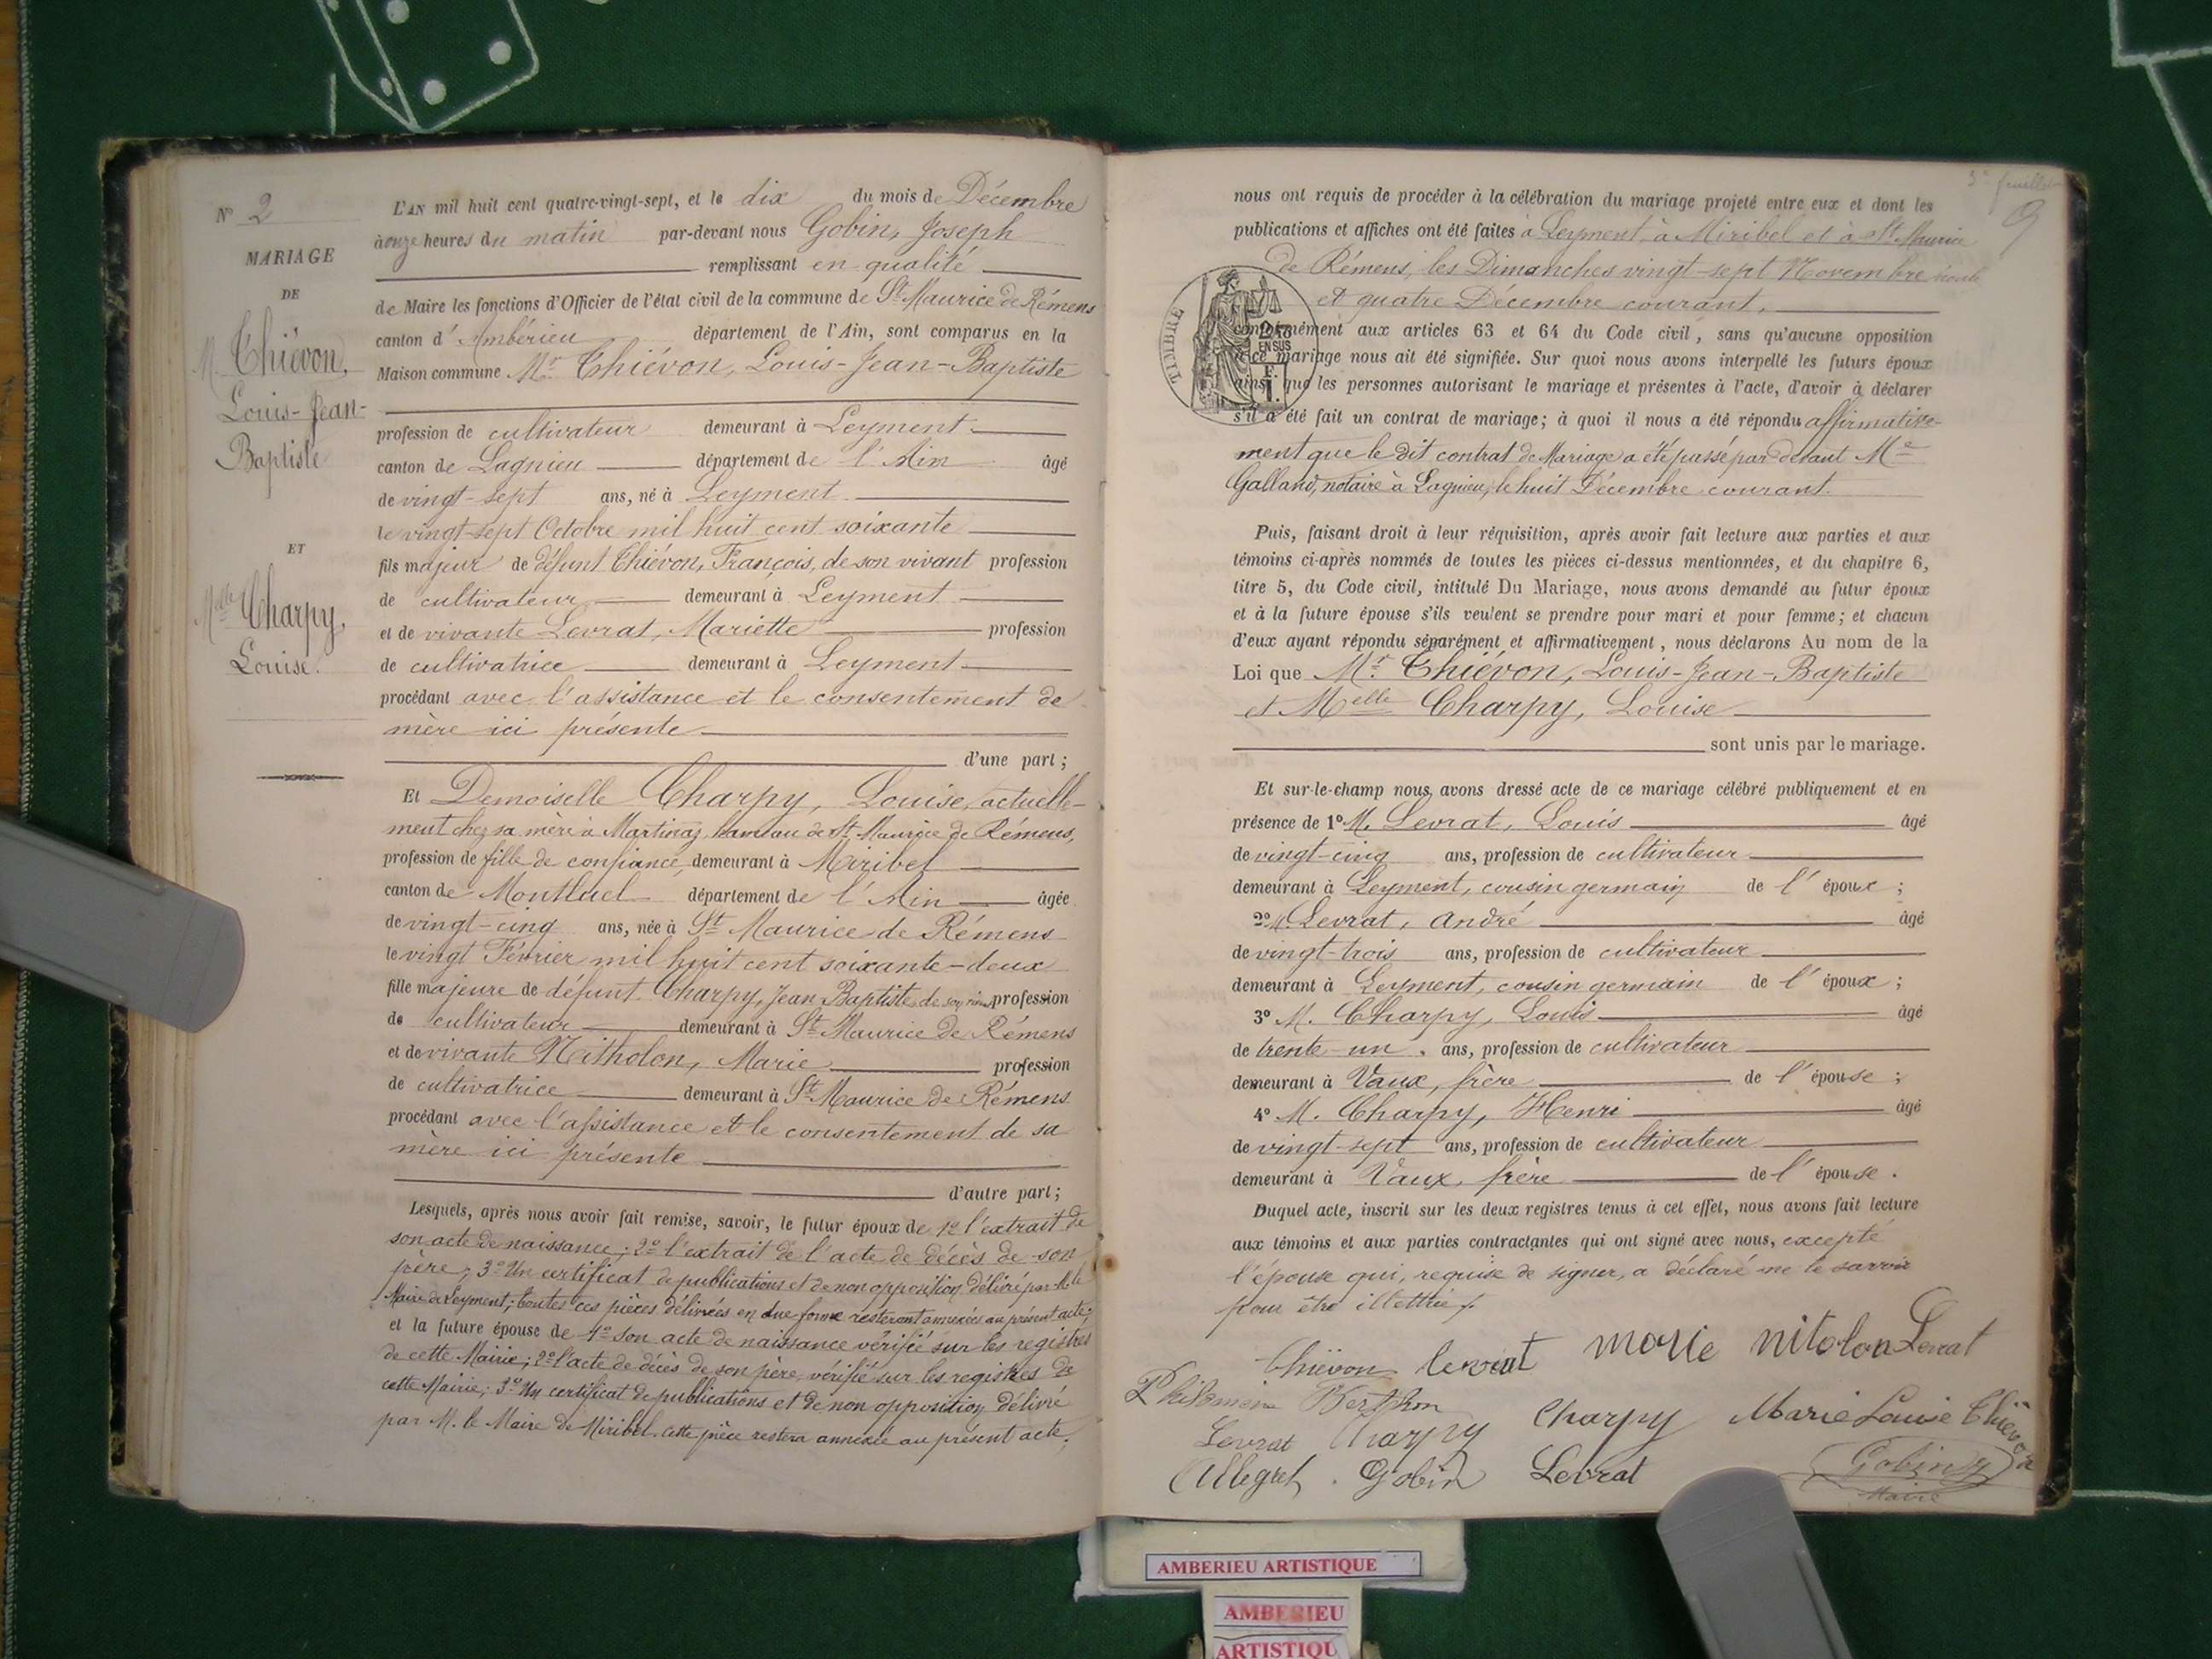 N° 2
MARIAGE
DE
M Thiévon,
Louis-Jean-
Baptiste
ET
Melle Charpy,
Louise.
L'AN mil huit cent quatre-vingt-sept, et le dix du mois de Décembre
à onze heures du matin par-devant nous Gobin, Joseph
remplissant en qualité
de Maire les fonctions d'Officier de l'état civil de la commune de St Maurice de Rémens
canton d'Ambérieu département de l'Ain, sont comparus en la
Maison commune Mr Thiévon, Louis-Jean-Baptiste
profession de cultivateur demeurant à Leyment
canton de Lagnieu département de l'Ain âgé
de vingt-sept ans, né à Leyment
le vingt-sept Octobre mil huit cent soixante
fils majeur de défunt Thiévon, François, de son vivant profession
de cultivateur demeurant à Leyment
et de vivante Levrat, Mariette profession
de cultivatrice demeurant à Leyment
procédant avec l'assistance et le consentement de
mère ici présente
d'une part ;
Et Demoiselle Charpy, Louise, actuelle-
ment chez sa mère à Martinaz, hameau de St Maurice de Rémens,
profession de fille de confiance, demeurant à Miribel
canton de Montluel département de l'Ain âgée
de vingt-cinq ans, née à St Maurice de Rémens
le vingt Février mil huit cent soixante-deux
fille majeure de défunt Charpy, Jean Baptiste, de son vivant profession
de cultivateur demeurant à St Maurice de Rémens
et de vivante Nitholon, Marie profession
de cultivatrice demeurant à St Maurice de Rémens
procédant avec l'assistance et le consentement de sa
mère ici présente
d'autre part ;
Lesquels, après nous avoir fait remise, savoir, le futur époux de 1° l'extrait de
son acte de naissance ; 2° l'extrait de l'acte de décès de son
père ; 3° Un certificat de publications et de non opposition délivré par M. le
Maire de Leyment ; toutes ces pièces délivrées en due forme resteront annexées au présent acte ;
et la future épouse de 1° son acte de naissance vérifié sur les registres
de cette Mairie ; 2° l'acte de décès de son père, vérifié sur les registres de
cette Mairie ; 3° Un certificat de publications et de non opposition délivré
par M. le Maire de Miribel. cette pièce restera annexée au présent acte ;
5e feuillet
9
nous ont requis de procéder à la célébration du mariage projeté entre eux et dont les
publications et affiches ont été faites à Leyment, à Miribel et à St Maurice
de Rémens, les Dimanches vingt-sept Novembre
et quatre Décembre courant,
TIMBRE
2/10
EN SUS
F.
1.
conformément aux articles 63 et 64 du Code civil, sans qu'aucune opposition
à ce mariage nous ait été signifiée. Sur quoi nous avons interpellé les futurs époux
ainsi que les personnes autorisant le mariage et présentes à l'acte, d'avoir à déclarer
s'il a été fait un contrat de mariage ; à quoi il nous a été répondu affirmative-
ment que le dit contrat de Mariage a été passé par devant Me
Galland, notaire à Lagnieu, le huit Décembre courant.
Puis, faisant droit à leur réquisition, après avoir fait lecture aux parties et aux
témoins ci-après nommés de toutes les pièces ci-dessus mentionnées, et du chapitre 6,
titre 5, du Code civil, intitulé Du Mariage, nous avons demandé au futur époux
et à la future épouse s'ils veulent se prendre pour mari et pour femme ; et chacun
d'eux ayant répondu séparément et affirmativement, nous déclarons Au nom de la
Loi que Mr Thiévon, Louis-Jean-Baptiste
et Melle Charpy, Louise
sont unis par le mariage.
Et sur-le-champ nous avons dressé acte de ce mariage célébré publiquement et en
présence de 1° M. Levrat, Louis âgé
de vingt-cinq ans, profession de cultivateur
demeurant à Leyment, cousin germain de l'époux ;
2° M. Levrat, André âgé
de vingt-trois ans, profession de cultivateur
demeurant à Leyment, cousin germain de l'époux ;
3° M. Charpy, Louis âgé
de trente-un ans, profession de cultivateur
demeurant à Vaux, frère de l'épouse ;
4° M. Charpy, Henri âgé
de vingt-sept ans, profession de cultivateur
demeurant à Vaux, frère de l'épouse.
Duquel acte, inscrit sur les deux registres tenus à cet effet, nous avons fait lecture
aux témoins et aux parties contractantes qui ont signé avec nous, excepté
l'épouse qui, requise de signer, a déclaré ne le savoir
pour être illettrée.
Thiévon levrat marie nitolon Levrat
Berthon
Levrat Charpy Charpy Marie Louise Thiévon
Allegret Gobin Levrat Gobin
Maire
AMBERIEU ARTISTIQUE
AMBERIEU
ARTISTIQU